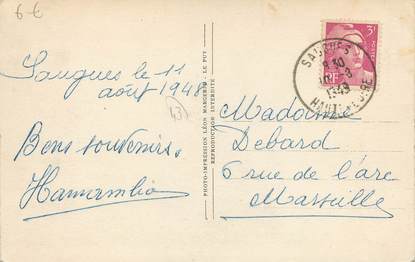 6 €
Saugues le 11
août 1948
43
Bons souvenirs.
PHOTO-IMPRESSION LÉON MARGERIT - LE PUY
REPRODUCTION INTERDITE
3F
RF
SAUGUES
HAUTE-LOIRE
Madame
Debard
6 rue de l'arc
Marseille